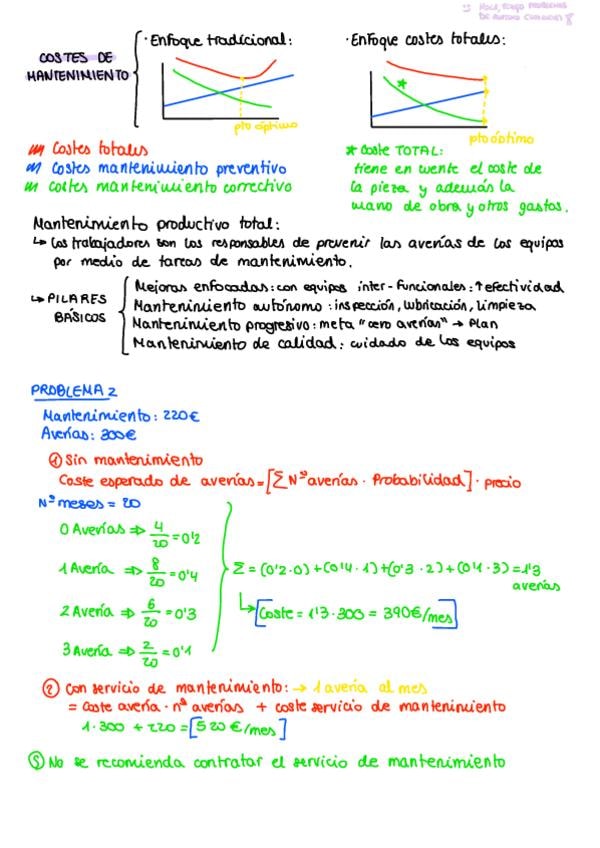 COSTES DE
MANTENIMIENTO
· Enfoque tradicional:
pto óptimo
· Enfoque costes totales:
pto óptimo
/// Costes totales
/// Costes mantenimiento preventivo
/// costes mantenimiento correctivo
* Coste TOTAL:
tiene en cuente el coste de
la pieza y además la
mano de obra y otros gastos.
Mantenimiento productivo total:
↳ Los trabajadores son los responsables de prevenir las averías de los equipos
por medio de tareas de mantenimiento.
↳ PILARES
BÁSICOS
Mejoras enfocadas: con equipos inter-funcionales: ↑ efectividad
Mantenimiento autónomo: inspección, lubricación, limpieza
Mantenimiento progresivo: meta "cero averías" → Plan
Mantenimiento de calidad: cuidado de los equipos
PROBLEMA 2
Mantenimiento: 220€
Averías: 300€
① Sin mantenimiento
Coste esperado de averías = [Σ Nº averías · Probabilidad] · precio
Nº meses = 20
0 Averías ⇒ 4/20 = 0'2
1 Avería ⇒ 8/20 = 0'4
2 Avería ⇒ 6/20 = 0'3
3 Avería ⇒ 2/20 = 0'1
Σ = (0'2·0) + (0'4·1) + (0'3·2) + (0'1·3) = 1'3
averías
↳ [Coste = 1'3·300 = 390€/mes]
② Con servicio de mantenimiento: → 1 avería al mes
= coste avería · nº averías + coste servicio de mantenimiento
1·300 + 220 = [520 €/mes]
Ⓢ No se recomienda contratar el servicio de mantenimiento